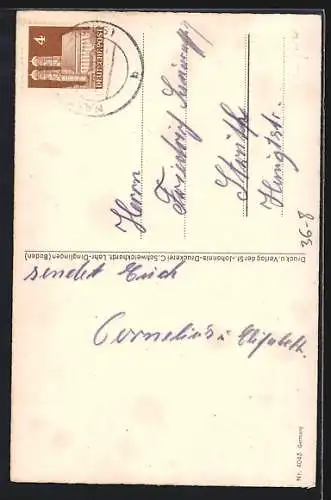 sendet Euch
Cornelius u. Elisabeth.
Druck u. Verlag der St.-Johannis-Druckerei C. Schweickhardt, Lahr-Dinglingen (Baden)
Nr. 4043 Germany
4
DEUTSCHE POST
b
Herrn
Friedrich
Hauptstr.
36-8